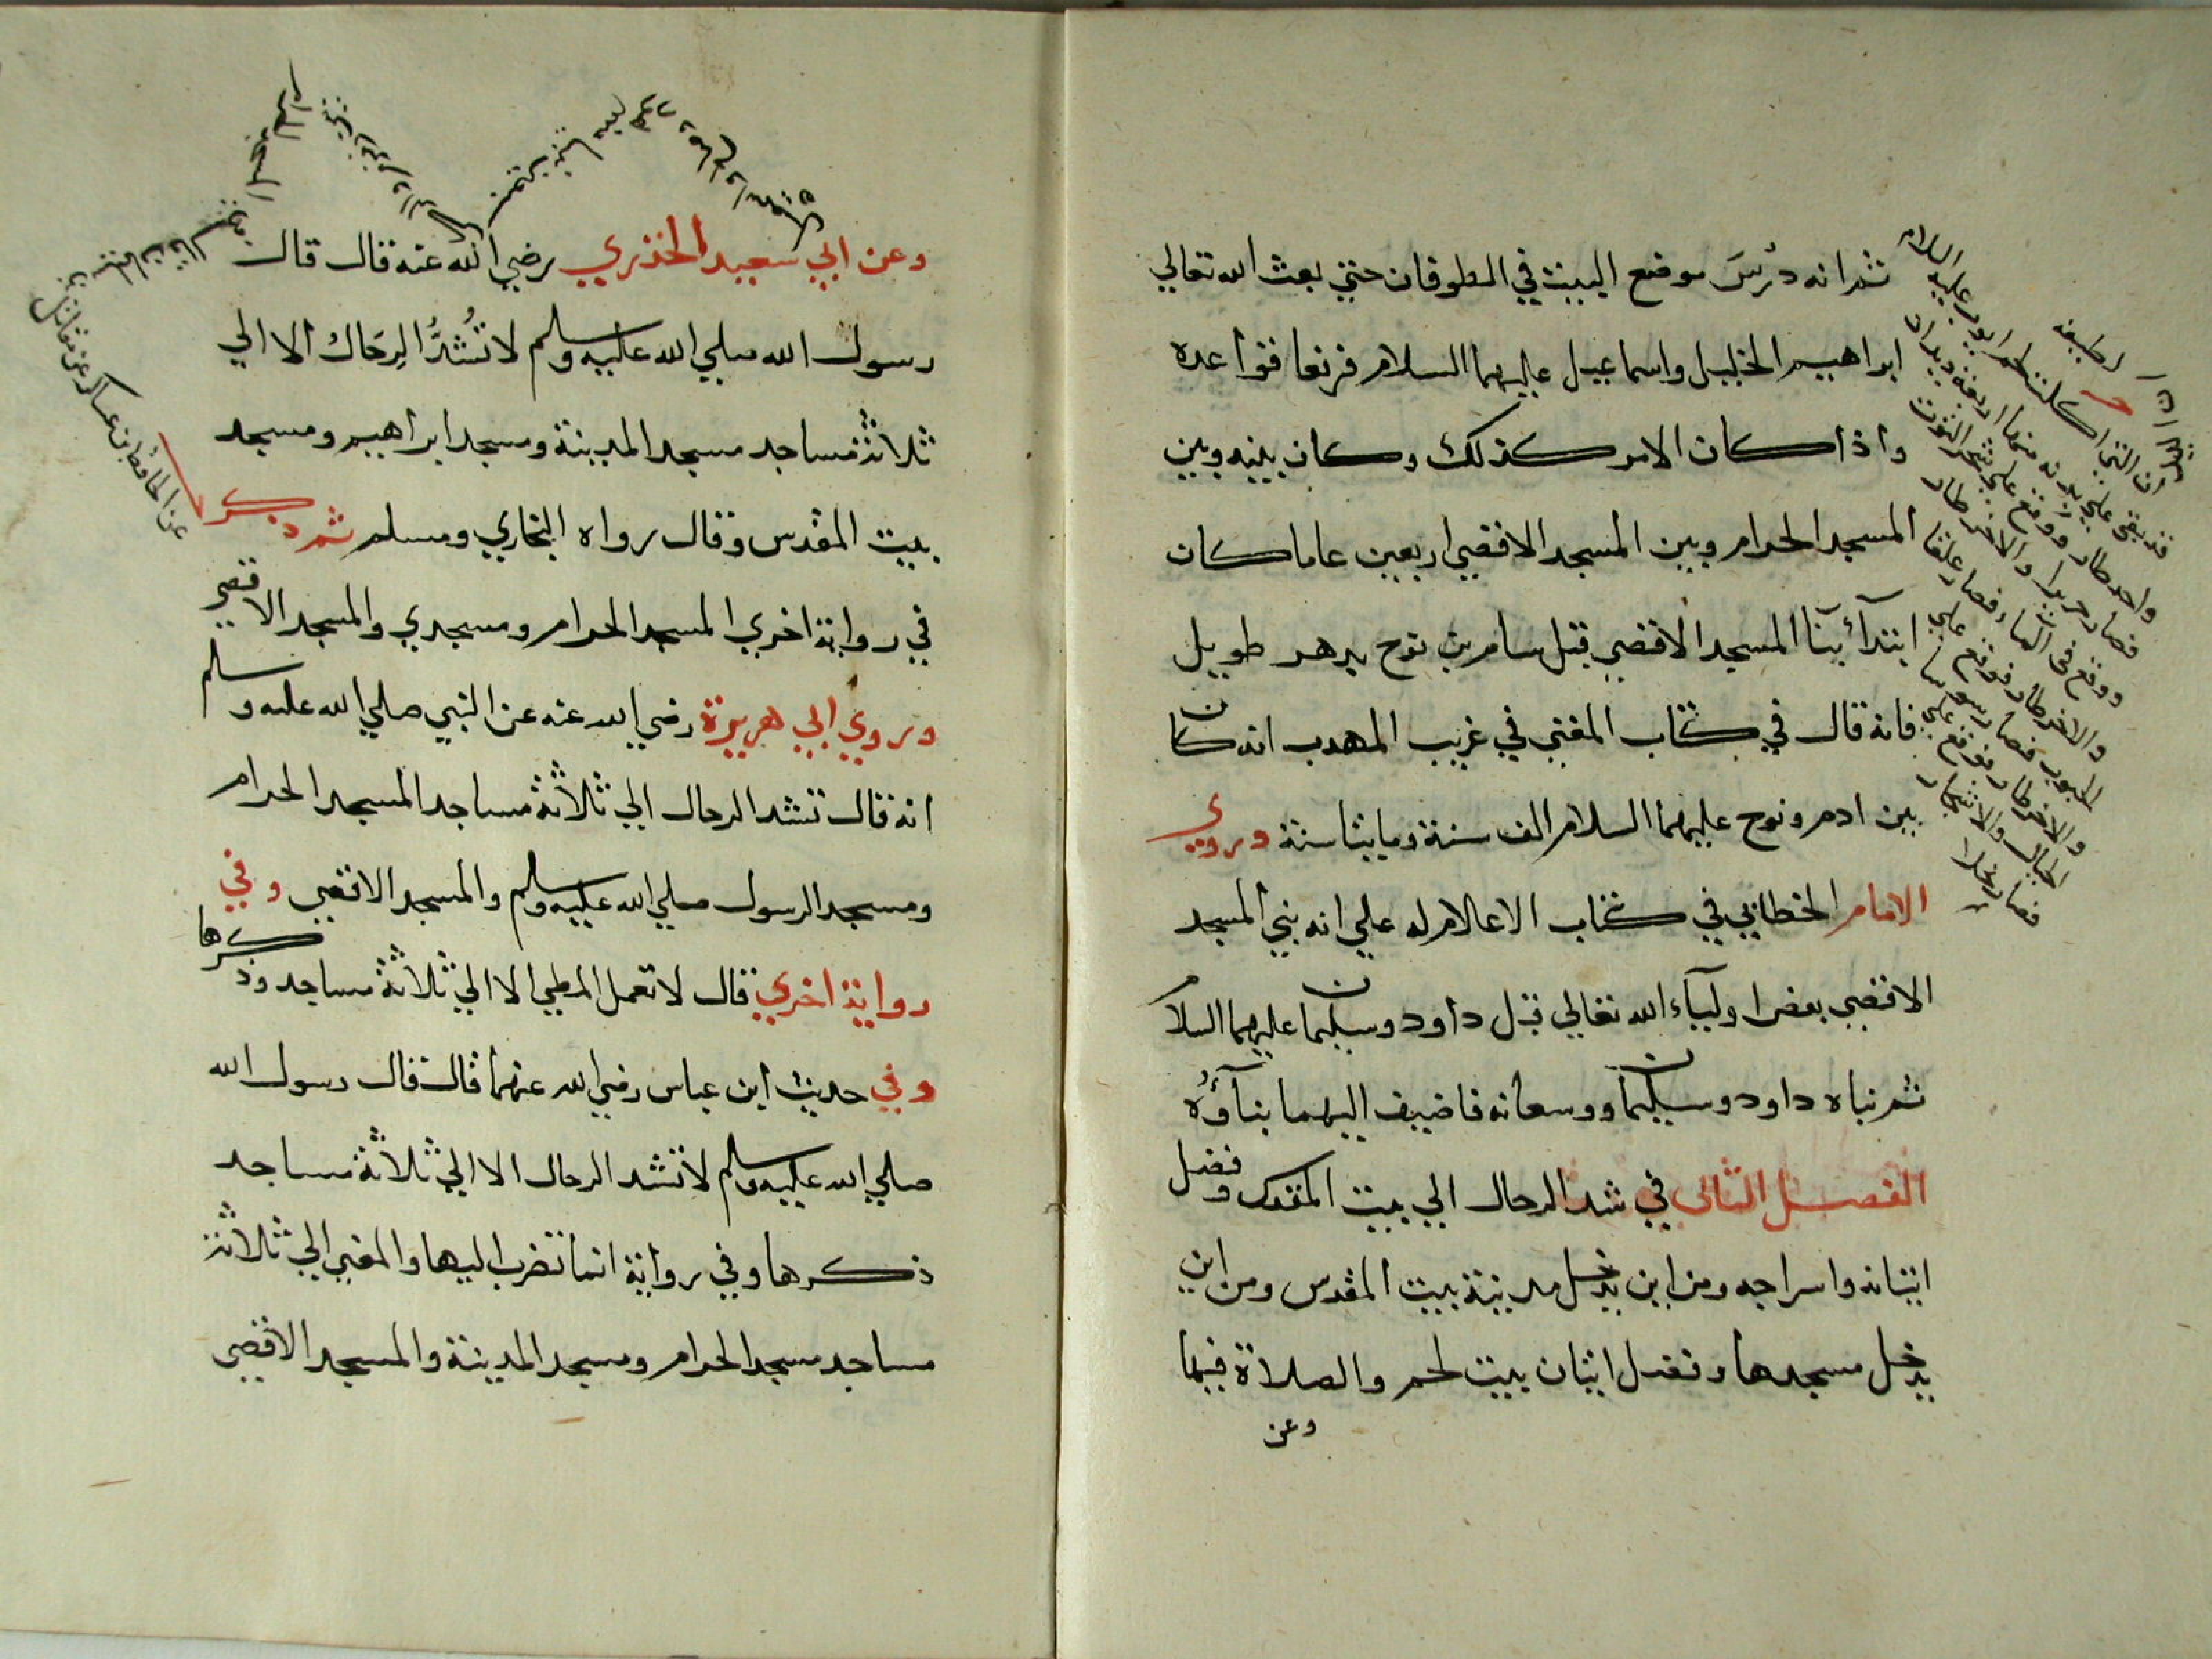 ثم انه دُرِسَ موضع البيت في الطوفان حتي بعث الله تعالي
ابراهيم الخليل واسماعيل عليهما السلام فرفعا قواعده
واذا كان الامر كذلك وكان بينه وبين
المسجد الحرام وبين المسجد الاقصي اربعين عاما كان
ابتدآء بنآ المسجد الاقصي قبل سام بن نوح بدهر طويل
فانه قال في كتاب المغني في غريب المهدب انه كان
بين ادم ونوح عليهما السلام الف سنة ومايتا سنة وروي
الامام الخطابي في كتاب الاعلام له علي انه بني المسجد
الاقصي بعض اوليآء الله تعالي قبل داود وسليمان عليهما السلام
ثم بناه داود وسليمان ووسعانه فاضيف اليهما بنآؤُه
الفصل الثاني في شد الرحال الي بيت المقدس وفضل
اتيانه واسراجه ومن اين يدخل مدينة بيت المقدس ومن اين
يدخل مسجدها وفضل اتيان بيت لحم والصلاة فيها
وعن
لطيفة
ان التي اكلت لحم ايوب عليه السلام
قد بقي علي بدنه منها اربعة ديدان
واحد طار ووقع علي شجر التوت
فصار حريرا والاخر طار
ووقع في الماء فصار علقا
والاخر طار فوقع علي
الحبوب فصار سوسا
والاخر طار فوقع علي
الجبال والاشجار
فصار نحلا
وعن ابي سعيد الخذري رضي الله عنه قال قال
رسول الله صلي الله عليه وسلم لا تُشَدُّ الرِحَال الا الي
ثلاثة مساجد مسجد المدينة ومسجد ابراهيم ومسجد
بيت المقدس وقال رواه البخاري ومسلم ثم ذكر
في رواية اخري المسجد الحرام ومسجدي والمسجد الاقصي
وروي ابي هريرة رضي الله عنه عن النبي صلي الله عليه وسلم
انه قال تشد الرحال الي ثلاثة مساجد المسجد الحرام
ومسجد الرسول صلي الله عليه وسلم والمسجد الاقصي وفي
رواية اخري قال لا تعمل المطي الا الي ثلاثة مساجد وذكرها
وفي حديث ابن عباس رضي الله عنهما قال قال رسول الله
صلي الله عليه وسلم لا تشد الرحال الا الي ثلاثة مساجد
ذكرها وفي رواية انما تضرب اليها والمغي الي ثلاثة
مساجد مسجد الحرام ومسجد المدينة والمسجد الاقصي